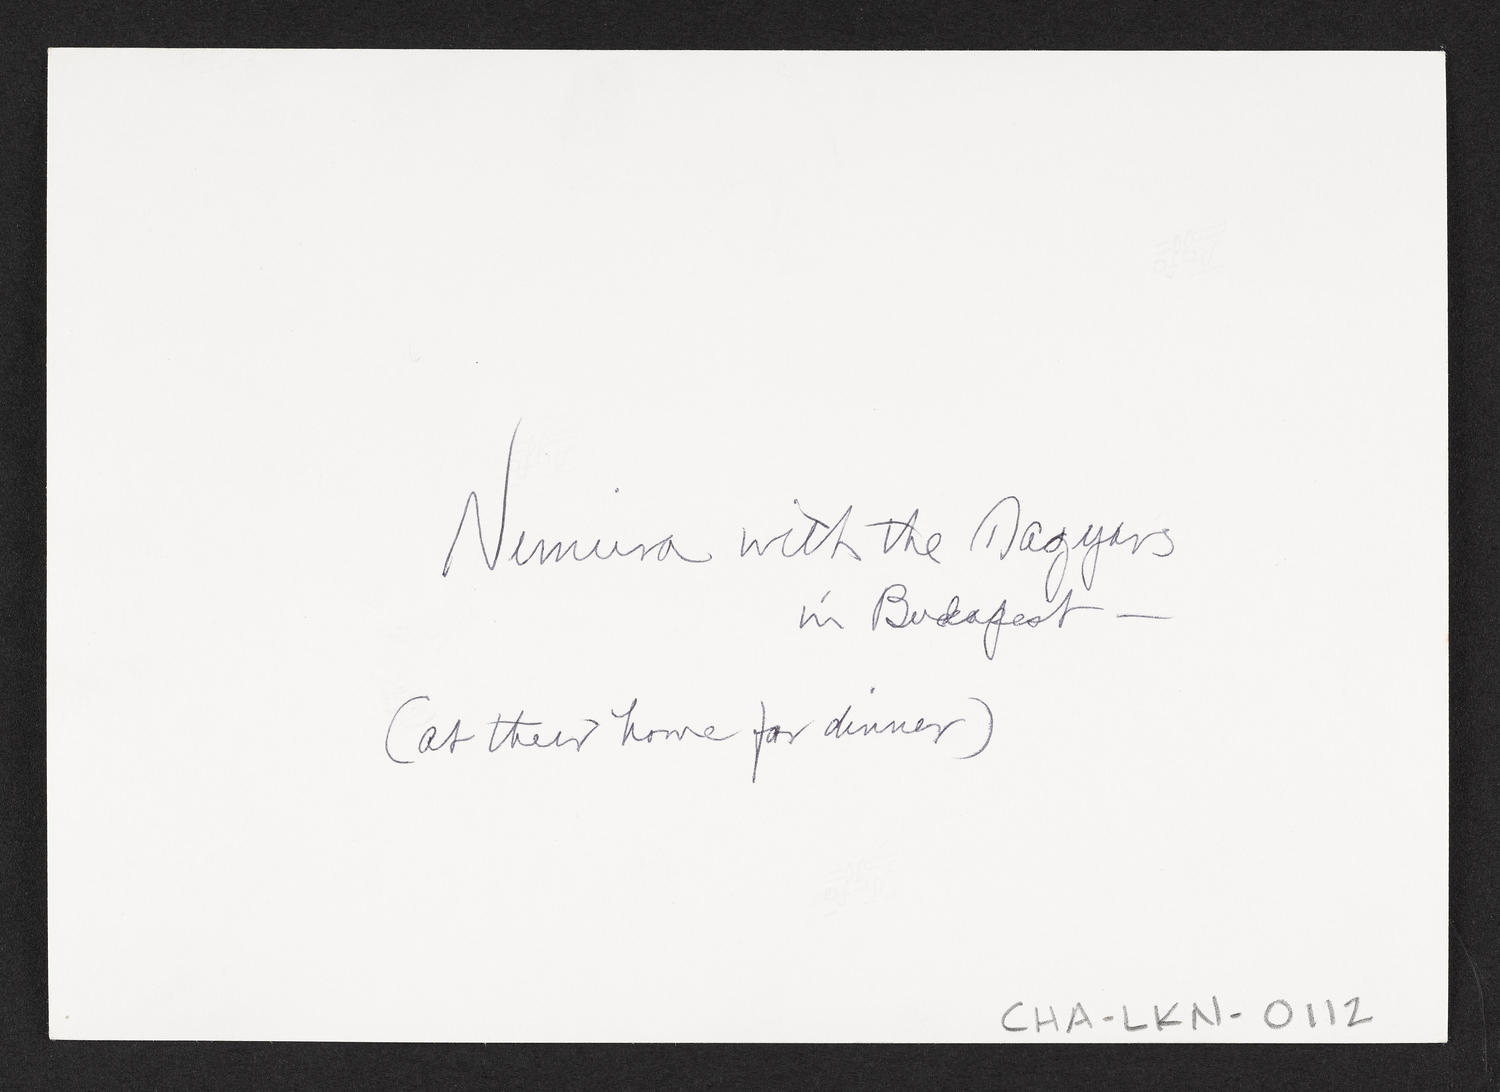 Nemiura with the Dagyars
in Budapest —
(at their home for dinner)
CHA-LKN-0112